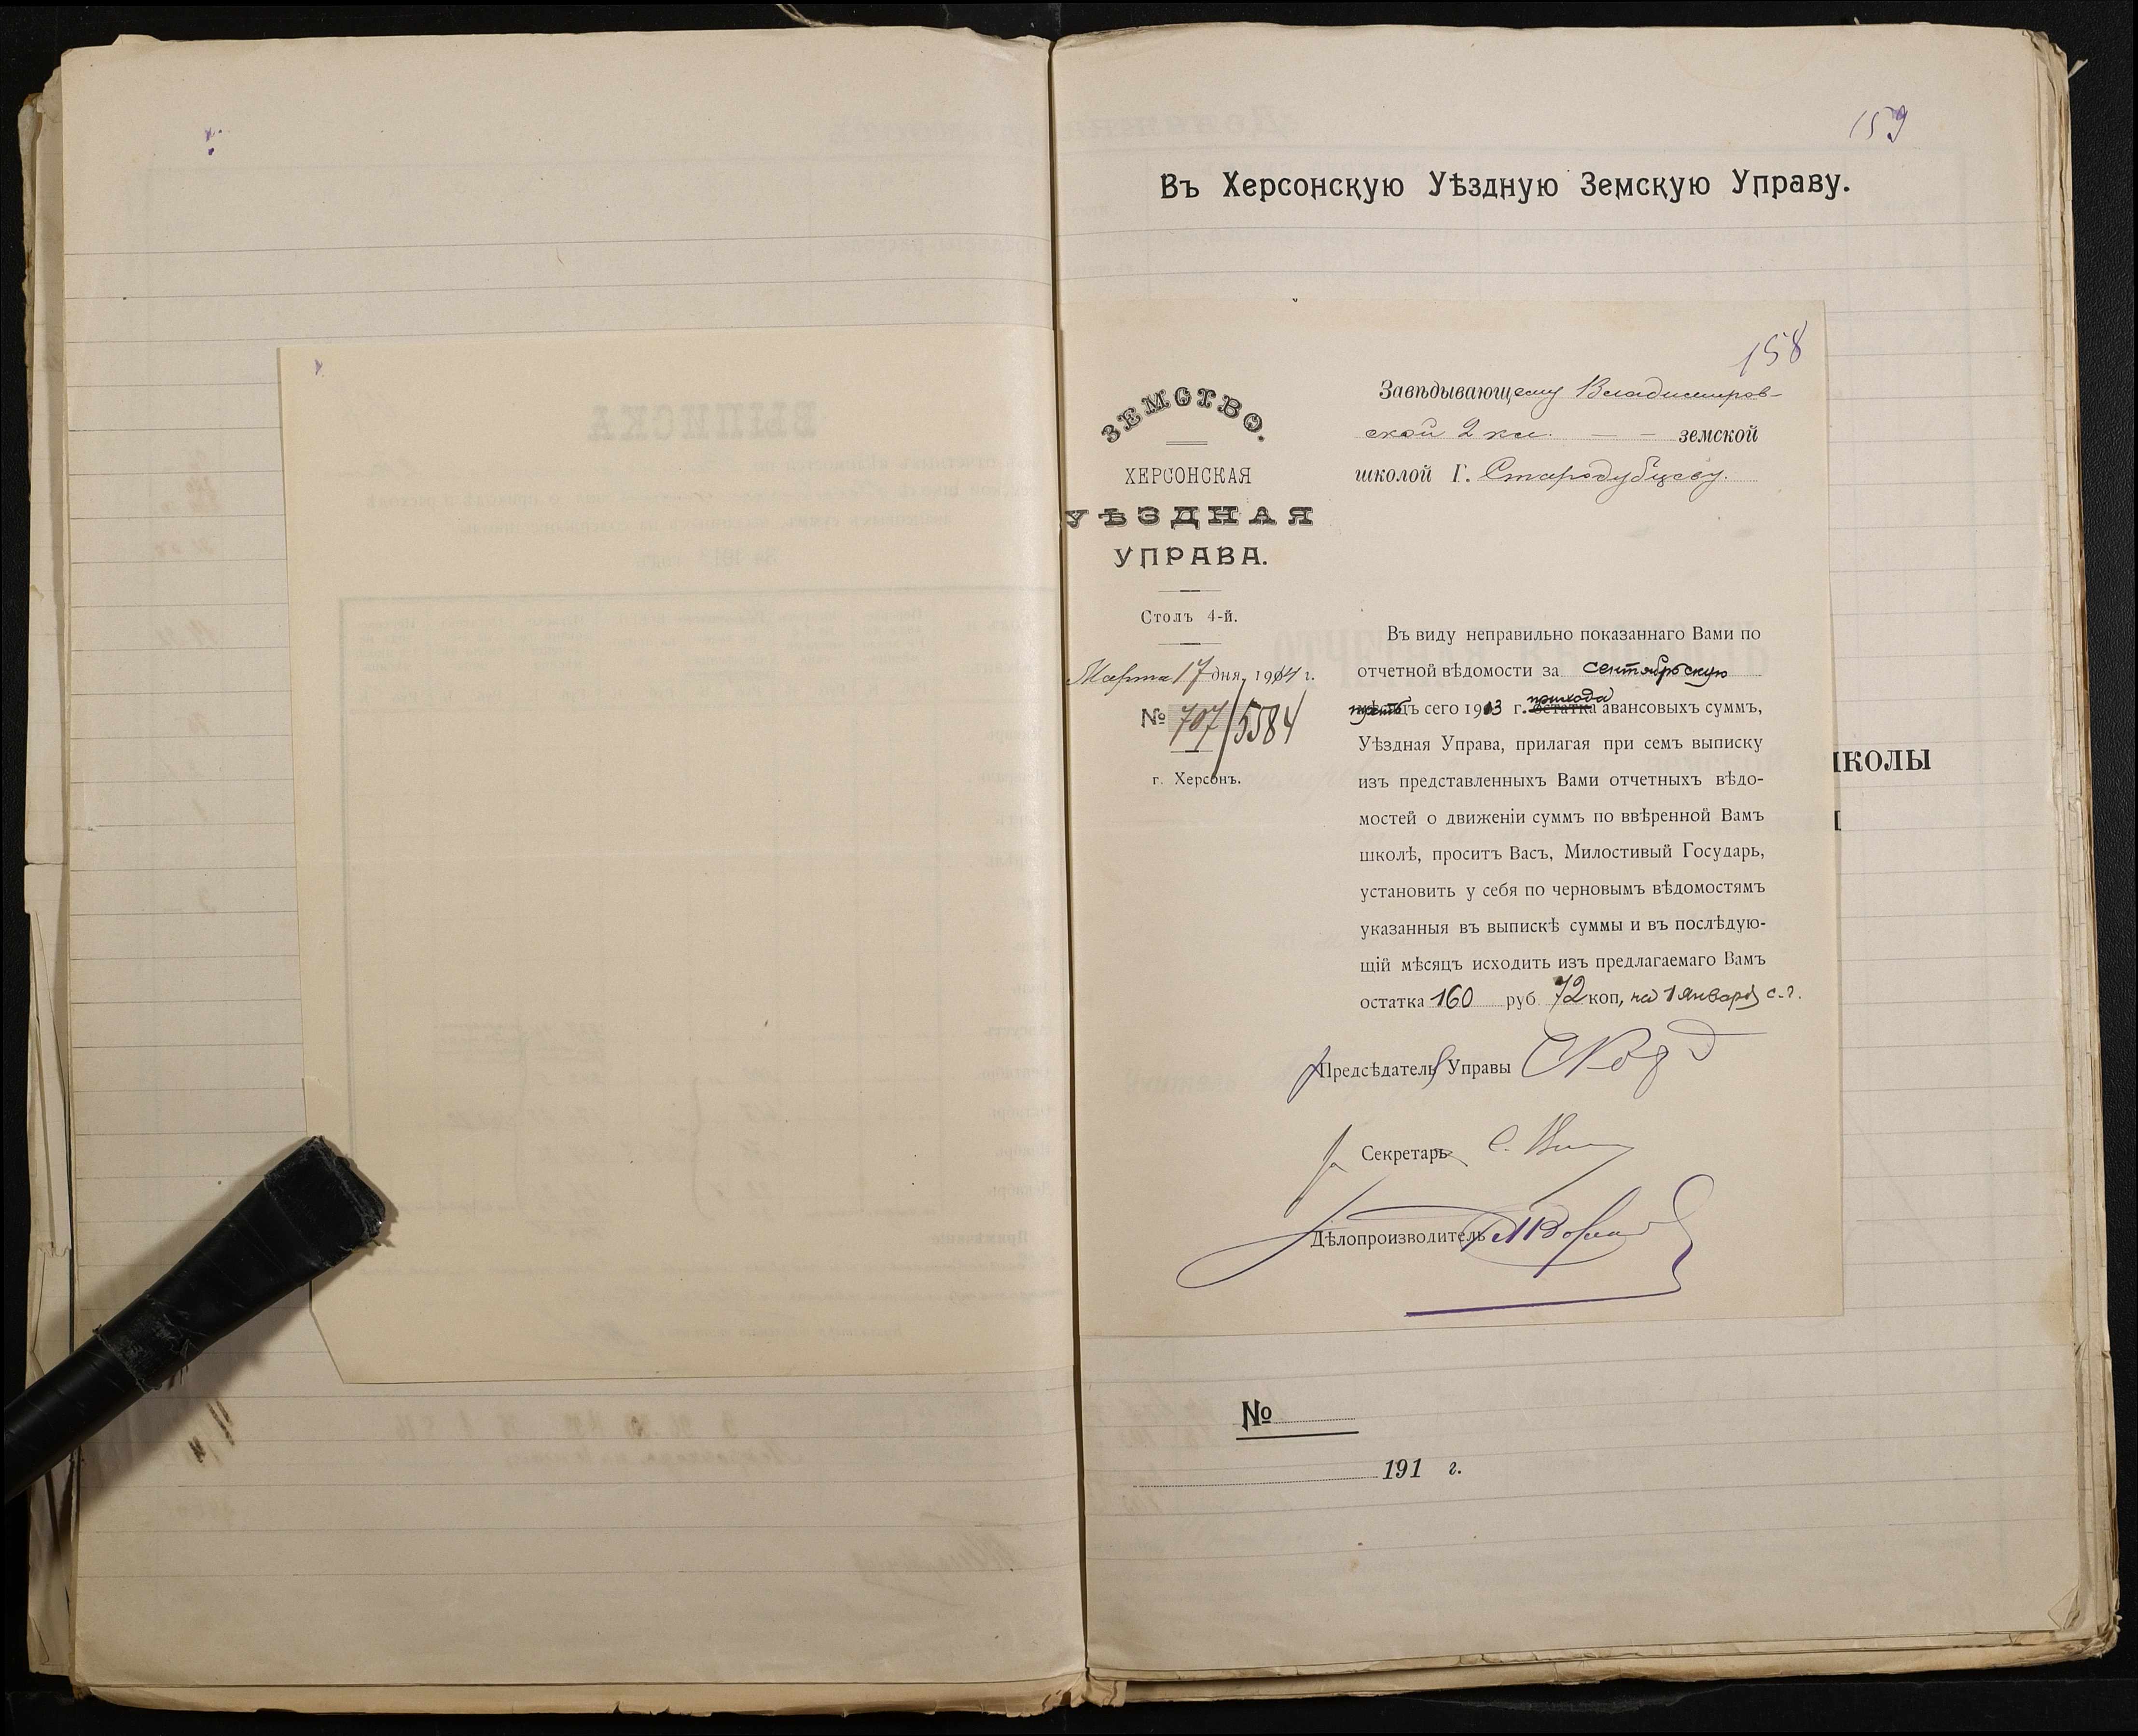 159
Въ Херсонскую Уѣздную Земскую Управу.
158
ЗЕМСТВО.
ХЕРСОНСКАЯ
УѢЗДНАЯ
УПРАВА.
Столъ 4-й.
Марта 17 дня, 1914 г.
№ 707/5584
г. Херсонъ.
Завѣдывающему Владимиров-
ской 2 кл. — — земской
школой Г. Стародубцеву.
Въ виду неправильно показаннаго Вами по
отчетной вѣдомости за сентябрьскую
треть сего 1913 г. прихода авансовыхъ суммъ,
Уѣздная Управа, прилагая при семъ выписку
изъ представленныхъ Вами отчетныхъ вѣдо-
мостей о движеніи суммъ по ввѣренной Вамъ
школѣ, проситъ Васъ, Милостивый Государь,
установить у себя по черновымъ вѣдомостямъ
указанныя въ выпискѣ суммы и въ послѣдую-
щій мѣсяцъ исходить изъ предлагаемаго Вамъ
остатка 160 руб. 72 коп, на 1 января с.г.
Предсѣдатель Управы
Секретарь
Дѣлопроизводитель
ШКОЛЫ
№
191 г.